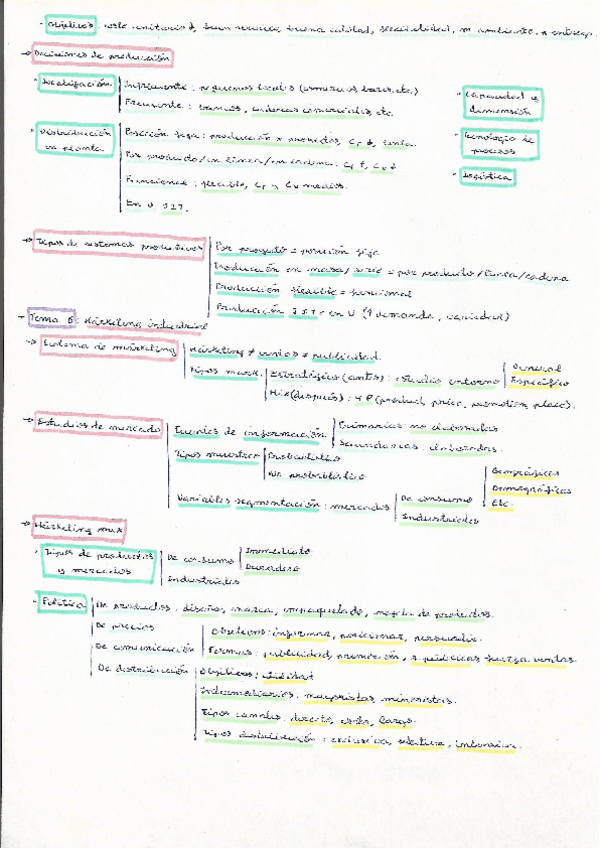 · Objetivos: coste unitario ↓, buena calidad, flexibilidad, m. ambiente
→ Decisiones de producción
· Localización
Infrecuente: pequeños locales (comercios, bares, etc.)
Frecuente: bancos, cadenas comerciales, etc.
· Capacidad y dimensión
· Distribución en planta
Posición fija: producción x proyectos, CF ↓, lenta.
Por producto/en línea/en cadena: CF ↑, CV ↓
Funcional: flexible, CF y CV medios.
En U JIT.
· Tecnología de procesos
· Logística
→ Tipos de sistemas productivos
Por proyecto = posición fija
Producción en masa/serie = por producto/línea/cadena
Producción flexible = funcional
Producción JIT = en U (↑ demanda, variedad)
- Tema 6: Márketing industrial
→ Sistema de márketing
Márketing ≠ ventas ≠ publicidad.
Tipos mark.
Estratégico (antes): estudios entorno
General
Específico
Mix (después): 4P (product, price, promotion, place).
→ Estudios de mercado
Fuentes de información
Primarias: no elaboradas
Secundarias: elaboradas.
Tipos muestreo
Probabilístico
No probabilístico
Variables segmentación: mercados
De consumo
Geográficas
Demográficas
Etc.
Industriales
→ Márketing mix
· Tipos de productos y mercados
De consumo
Inmediato
Duradero
Industriales
· Política
De productos: diseño, marca, empaquetado, mezcla de productos.
De precios
De comunicación
Objetivos: informar, posicionar, persuadir.
Formas: publicidad, promoción, r. públicas, fuerza ventas.
De distribución
Objetivos: utilidad
Intermediarios: mayoristas, minoristas.
Tipos canales: directo, corto, largo.
Tipos distribución: exclusiva, selectiva, intensiva.